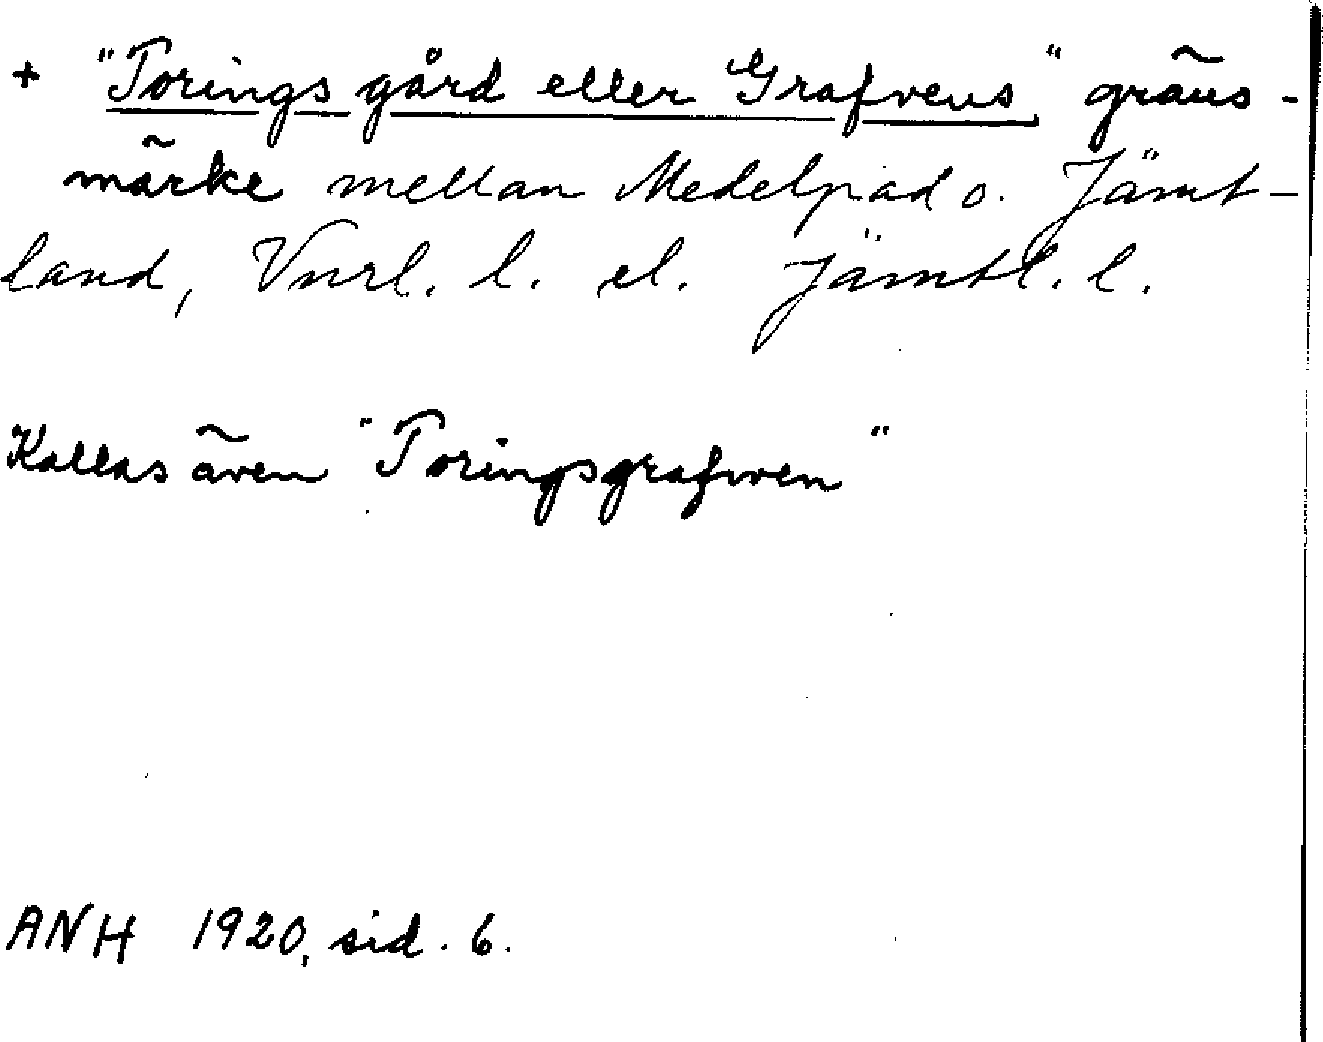 + "Torings gård eller Grafvens" gräns-
märke mellan Medelpad o. Jämt-
land, Vnrl. l. el. Jämtl. l.
Kallas även "Toringsgrafven"
ANH 1920, sid. 6.